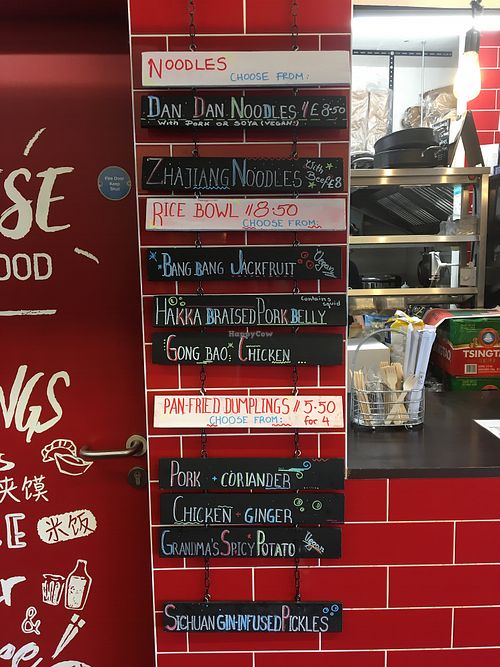 NOODLES
CHOOSE FROM:
DAN DAN NOODLES // £8·50
WITH PORK OR SOYA (VEGAN!)
ZHAJIANG NOODLES With Beef £8
RICE BOWL // 8·50
CHOOSE FROM:
BANG BANG JACKFRUIT Vegan
HAKKA BRAISED PORK BELLY contains squid
GONG BAO CHICKEN ...
PAN-FRIED DUMPLINGS // 5·50
CHOOSE FROM: for 4
PORK + CORIANDER
CHICKEN + GINGER
GRANDMA'S SPICY POTATO Vegan
SICHUAN GIN-INFUSED PICKLES
Fire Door
Keep
Shut
SE
OOD
NGS
夹馍
E 米饭
r
&
TSINGTA
HappyCow